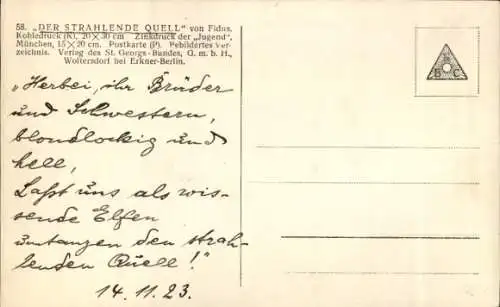 58. „DER STRAHLENDE QUELL" von Fidus.
Kohledruck (K), 20×30 cm Zinkdruck der „Jugend",
München, 15×20 cm. Postkarte (P). Pebildertes Ver-
zeichnis. Verlag des St. Georgs-Bundes, G. m. b. H.,
Woltersdorf bei Erkner-Berlin.
„Herbei, ihr Brüder
und Schwestern,
blondlockig und
hell,
Laßt uns als wis-
sende Elfen
umtanzen den strah-
lenden Quell!"
14.11.23.
B C